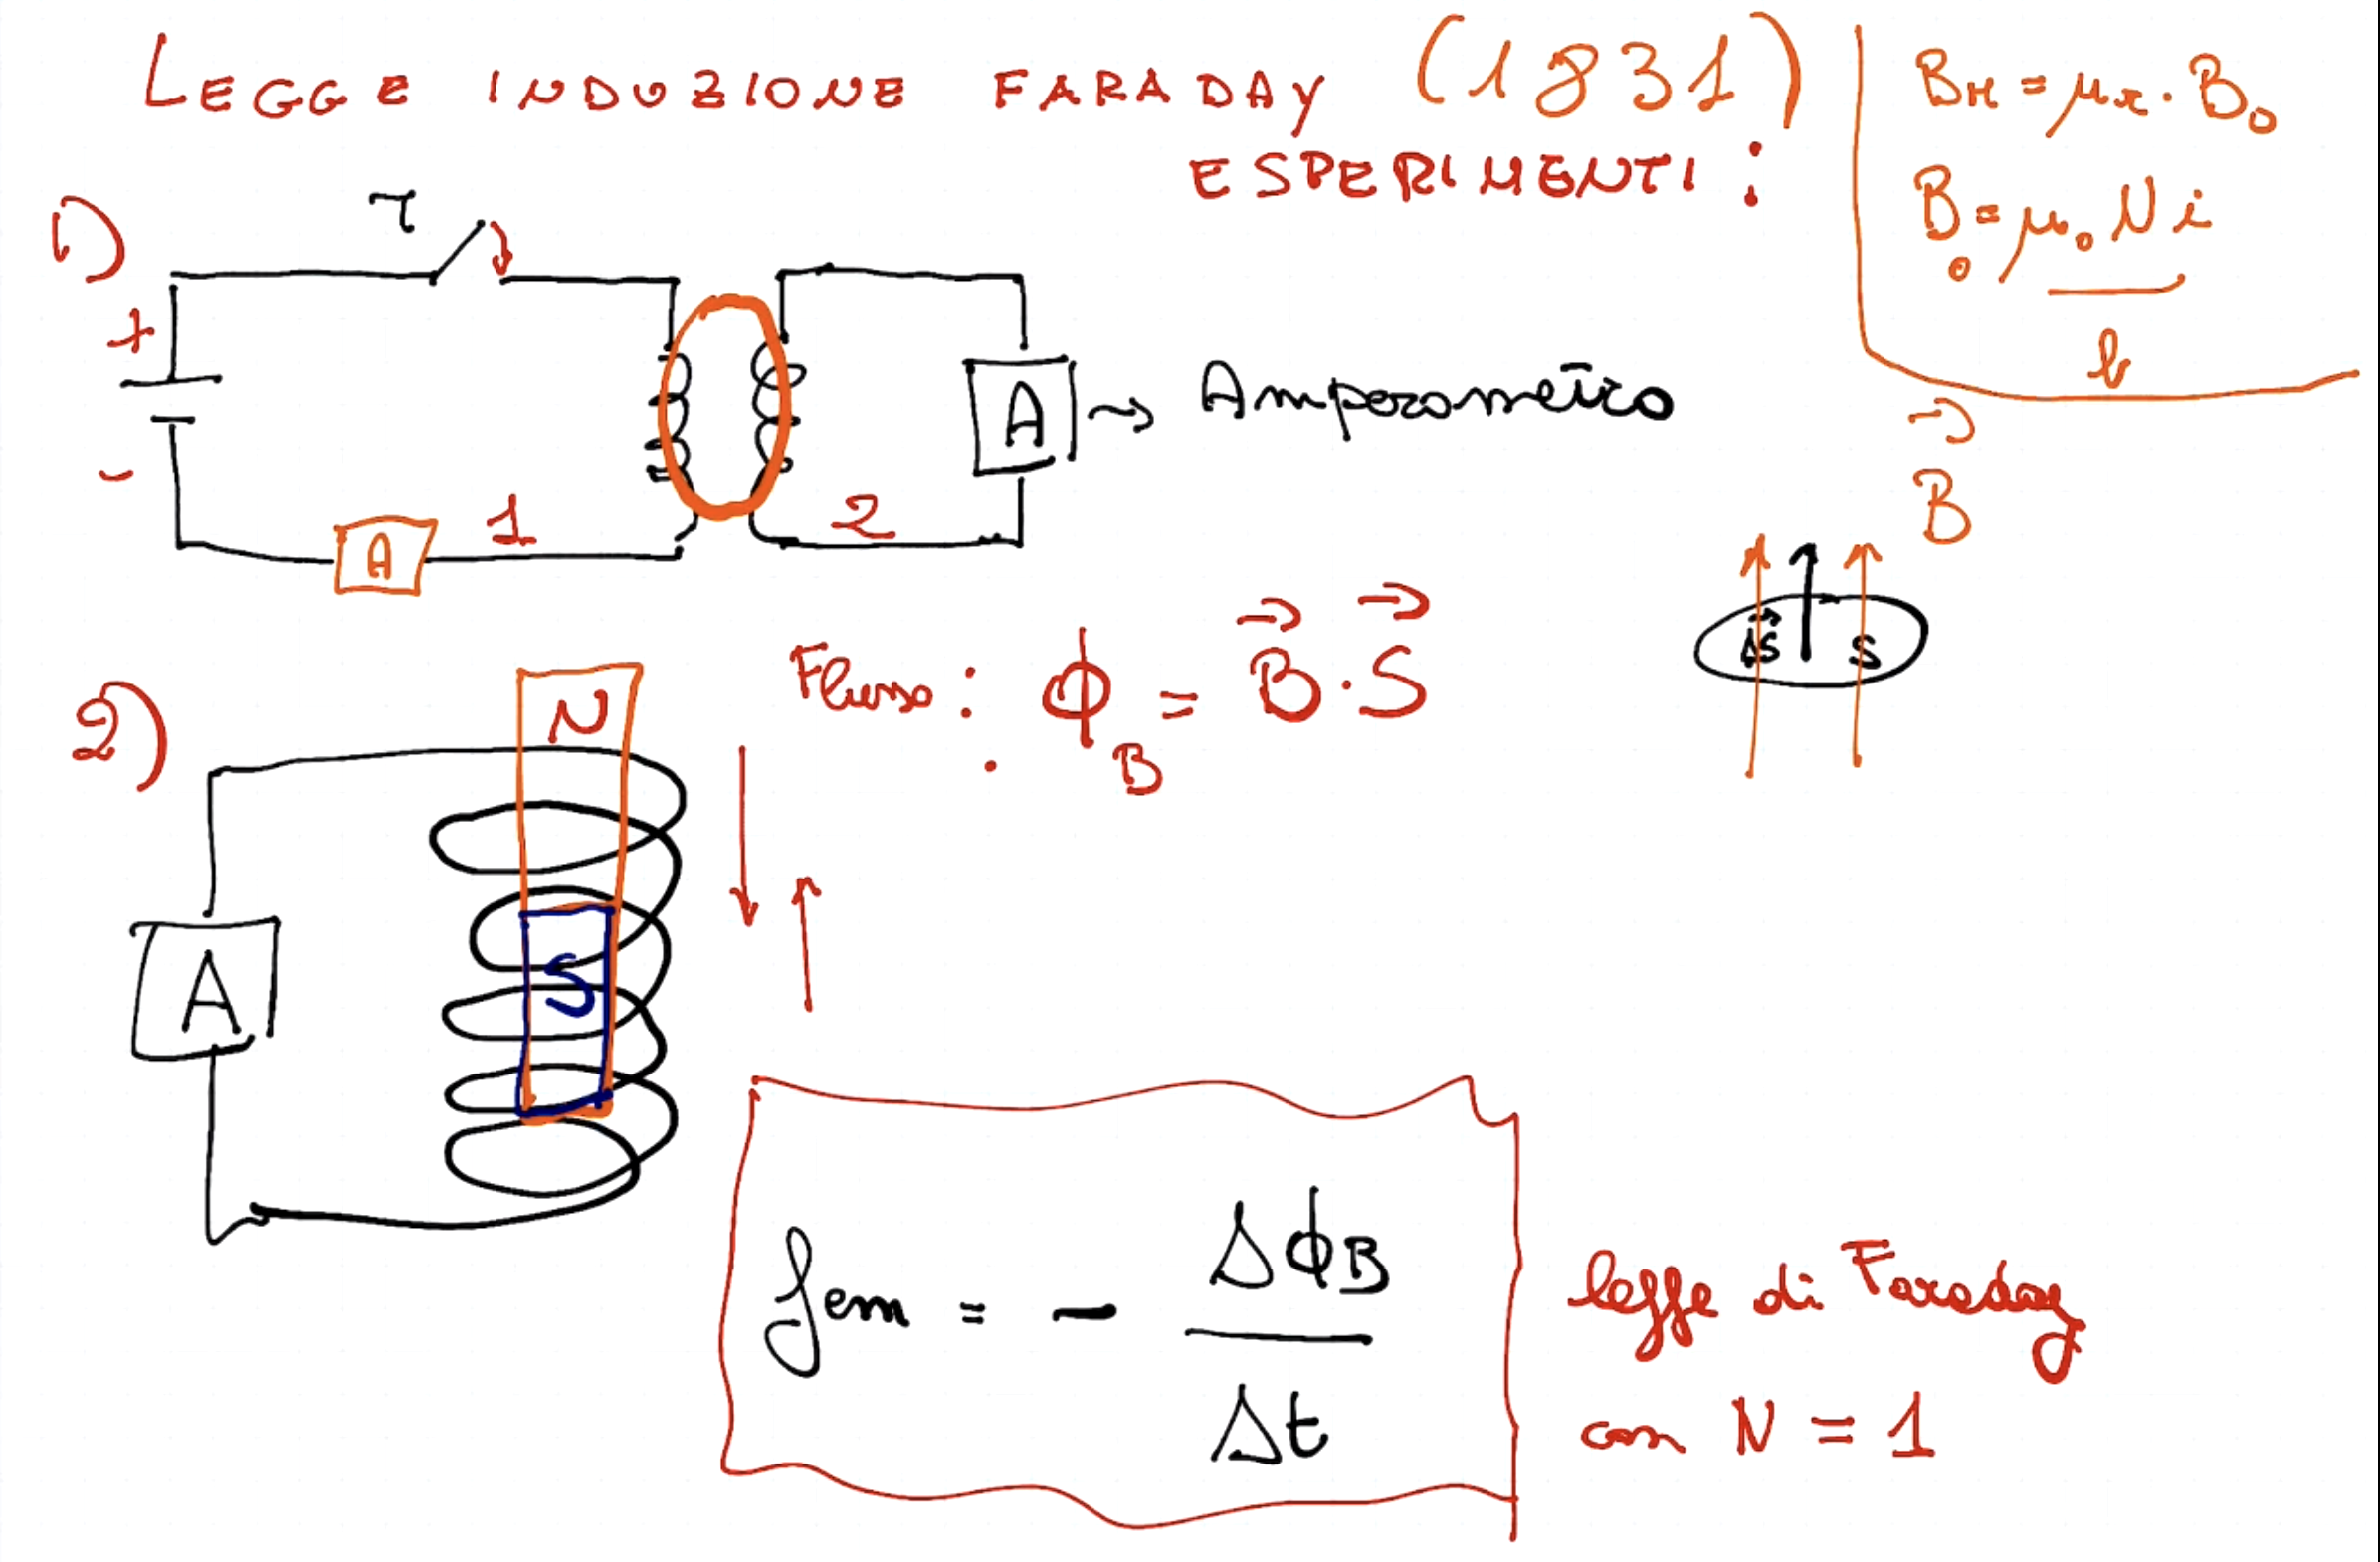 LEGGE INDUZIONE FARADAY (1831)
ESPERIMENTI :
B_M = μ_r · B_0
B_0 = μ_0 N i
l
1)
T
+
-
A
1
2
A → Amperometro
B
ΔS S
2)
N
S
A
Flusso : ϕ_B = B · S
fem = - Δϕ_B
Δt
legge di Faraday
con N = 1